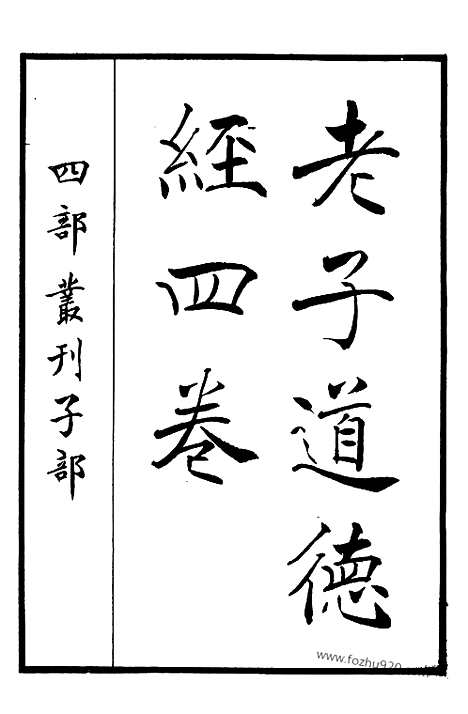 老子道德
經四卷
四部叢刊子部
www.fozhu920